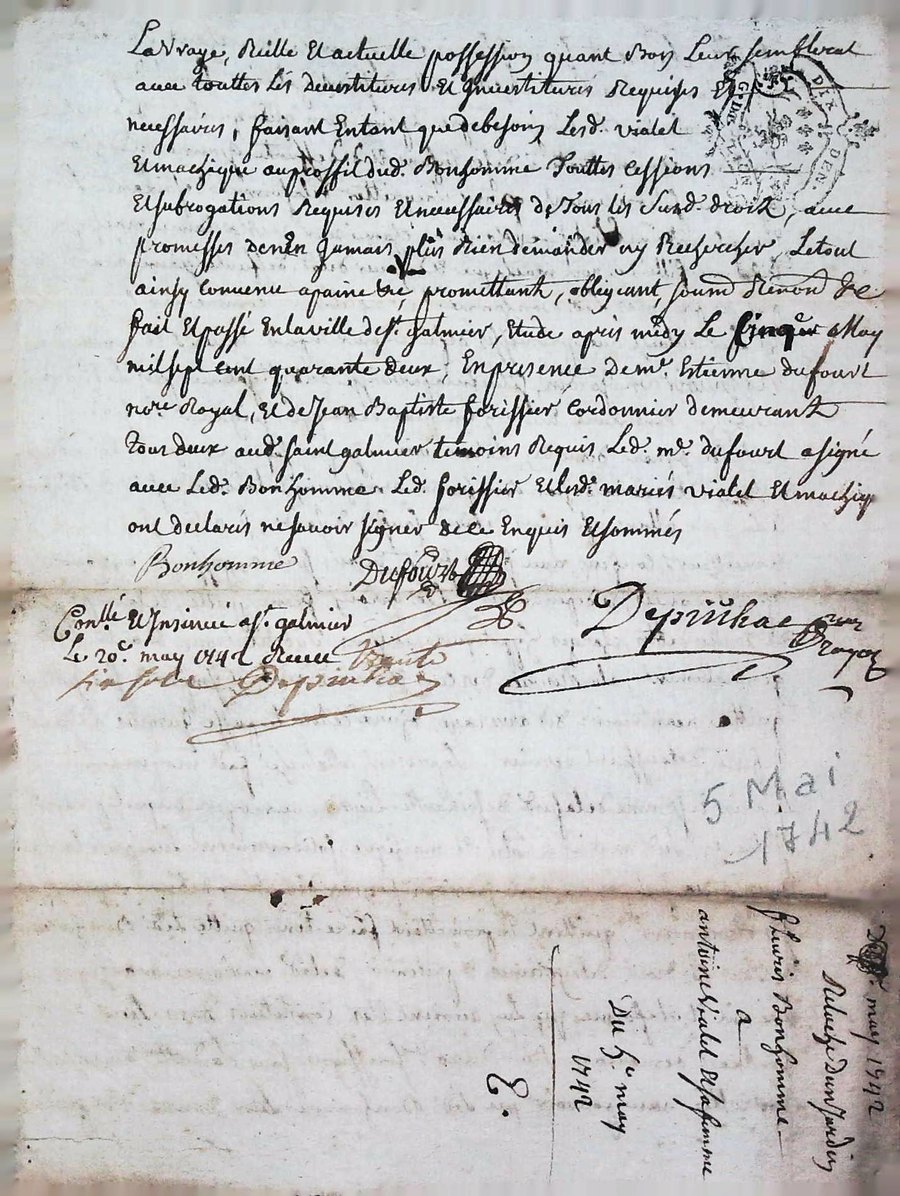 La vraye, Rëelle Et actuelle possession quant Bon Leur semblerat
avec touttes Les devestitures Et Investitures Requises Et
necessaires, faisant Entant que de besoing Lesd. vialet
Et mazique au proffit dud. Bonhomme Touttes cessions
Et subrogations Requises Et necessaires de Tous les Susd. droits, avec
promesses den En Jamais plus Rien demander ny Rechercher, Le tout
ainsy convenu a paine &c, promettant, obligeant, soumd Renond &c
fait Et passé En la ville de St. galmier, Etude apres midy Le Cinqe. May
mil sept cent quarante deux, En presence de mr. Estienne dufourt
nore Royal, Et de Jean Baptiste forissier cordonnier demeurant
tous deux aud. saint galmier temoins Requis, Led. mr. dufourt a signé
avec Led. Bonhomme Led. forissier Et Lesd. mariés vialet Et maziq
ont declarés ne savoir signer de ce Enquis Et sommés
Bonhomme Dufourt
Depinhac
Conllé Et Insinué a St. galmier
Le 20e. may 1742 Receu
Depinhac
5 Mai
1742
may 1742
Relache Dun Jardin
fleuris Bonhomme
a
antoine vialet Et sa femme
Du 5e. may
1742
E.